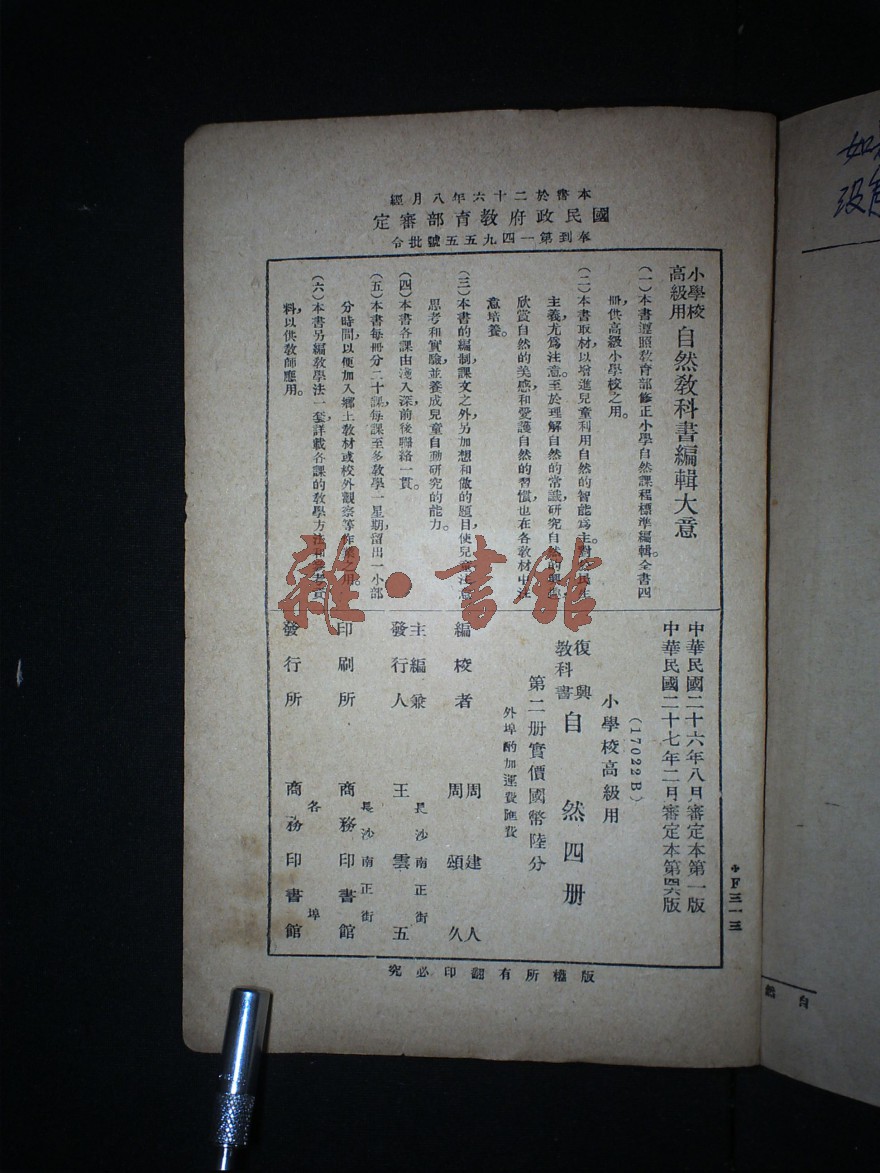 本書於二十六年八月經
國民政府教育部審定
奉到第一四九五五號批令
小學校高級用 自然教科書編輯大意
(一)本書遵照教育部修正小學自然課程標準編輯。全書四
冊,供高級小學校之用。
(二)本書取材,以增進兒童利用自然的智能爲主。對於民生
主義,尤爲注意。至於理解自然的常識,研究自然的興趣,
欣賞自然的美感,和愛護自然的習慣,也在各教材中注
意培養。
(三)本書的編制,課文之外,另加想和做的題目,使兒童注意
思考和實驗,並養成兒童自動研究的能力。
(四)本書各課由淺入深,前後聯絡一貫。
(五)本書每冊分二十課,每課至多教學一星期,留出一小部
分時間,以便加入鄉土教材或校外觀察等作業之用。
(六)本書另編教學法一套,詳載各課的教學方法和參考資
料,以供教師應用。
中華民國二十六年八月審定本第一版
中華民國二十七年二月審定本第四六版
(17022B)
小學校高級用
復興教科書 自然四册
第二册實價國幣陸分
外埠酌加運費匯費
編校者 周建人 周頌久
主編兼發行人 王雲五 長沙南正街
印刷所 商務印書館 長沙南正街
發行所 商務印書館 各埠
版權所有翻印必究
F三一三
雜·書館
自然
如
没